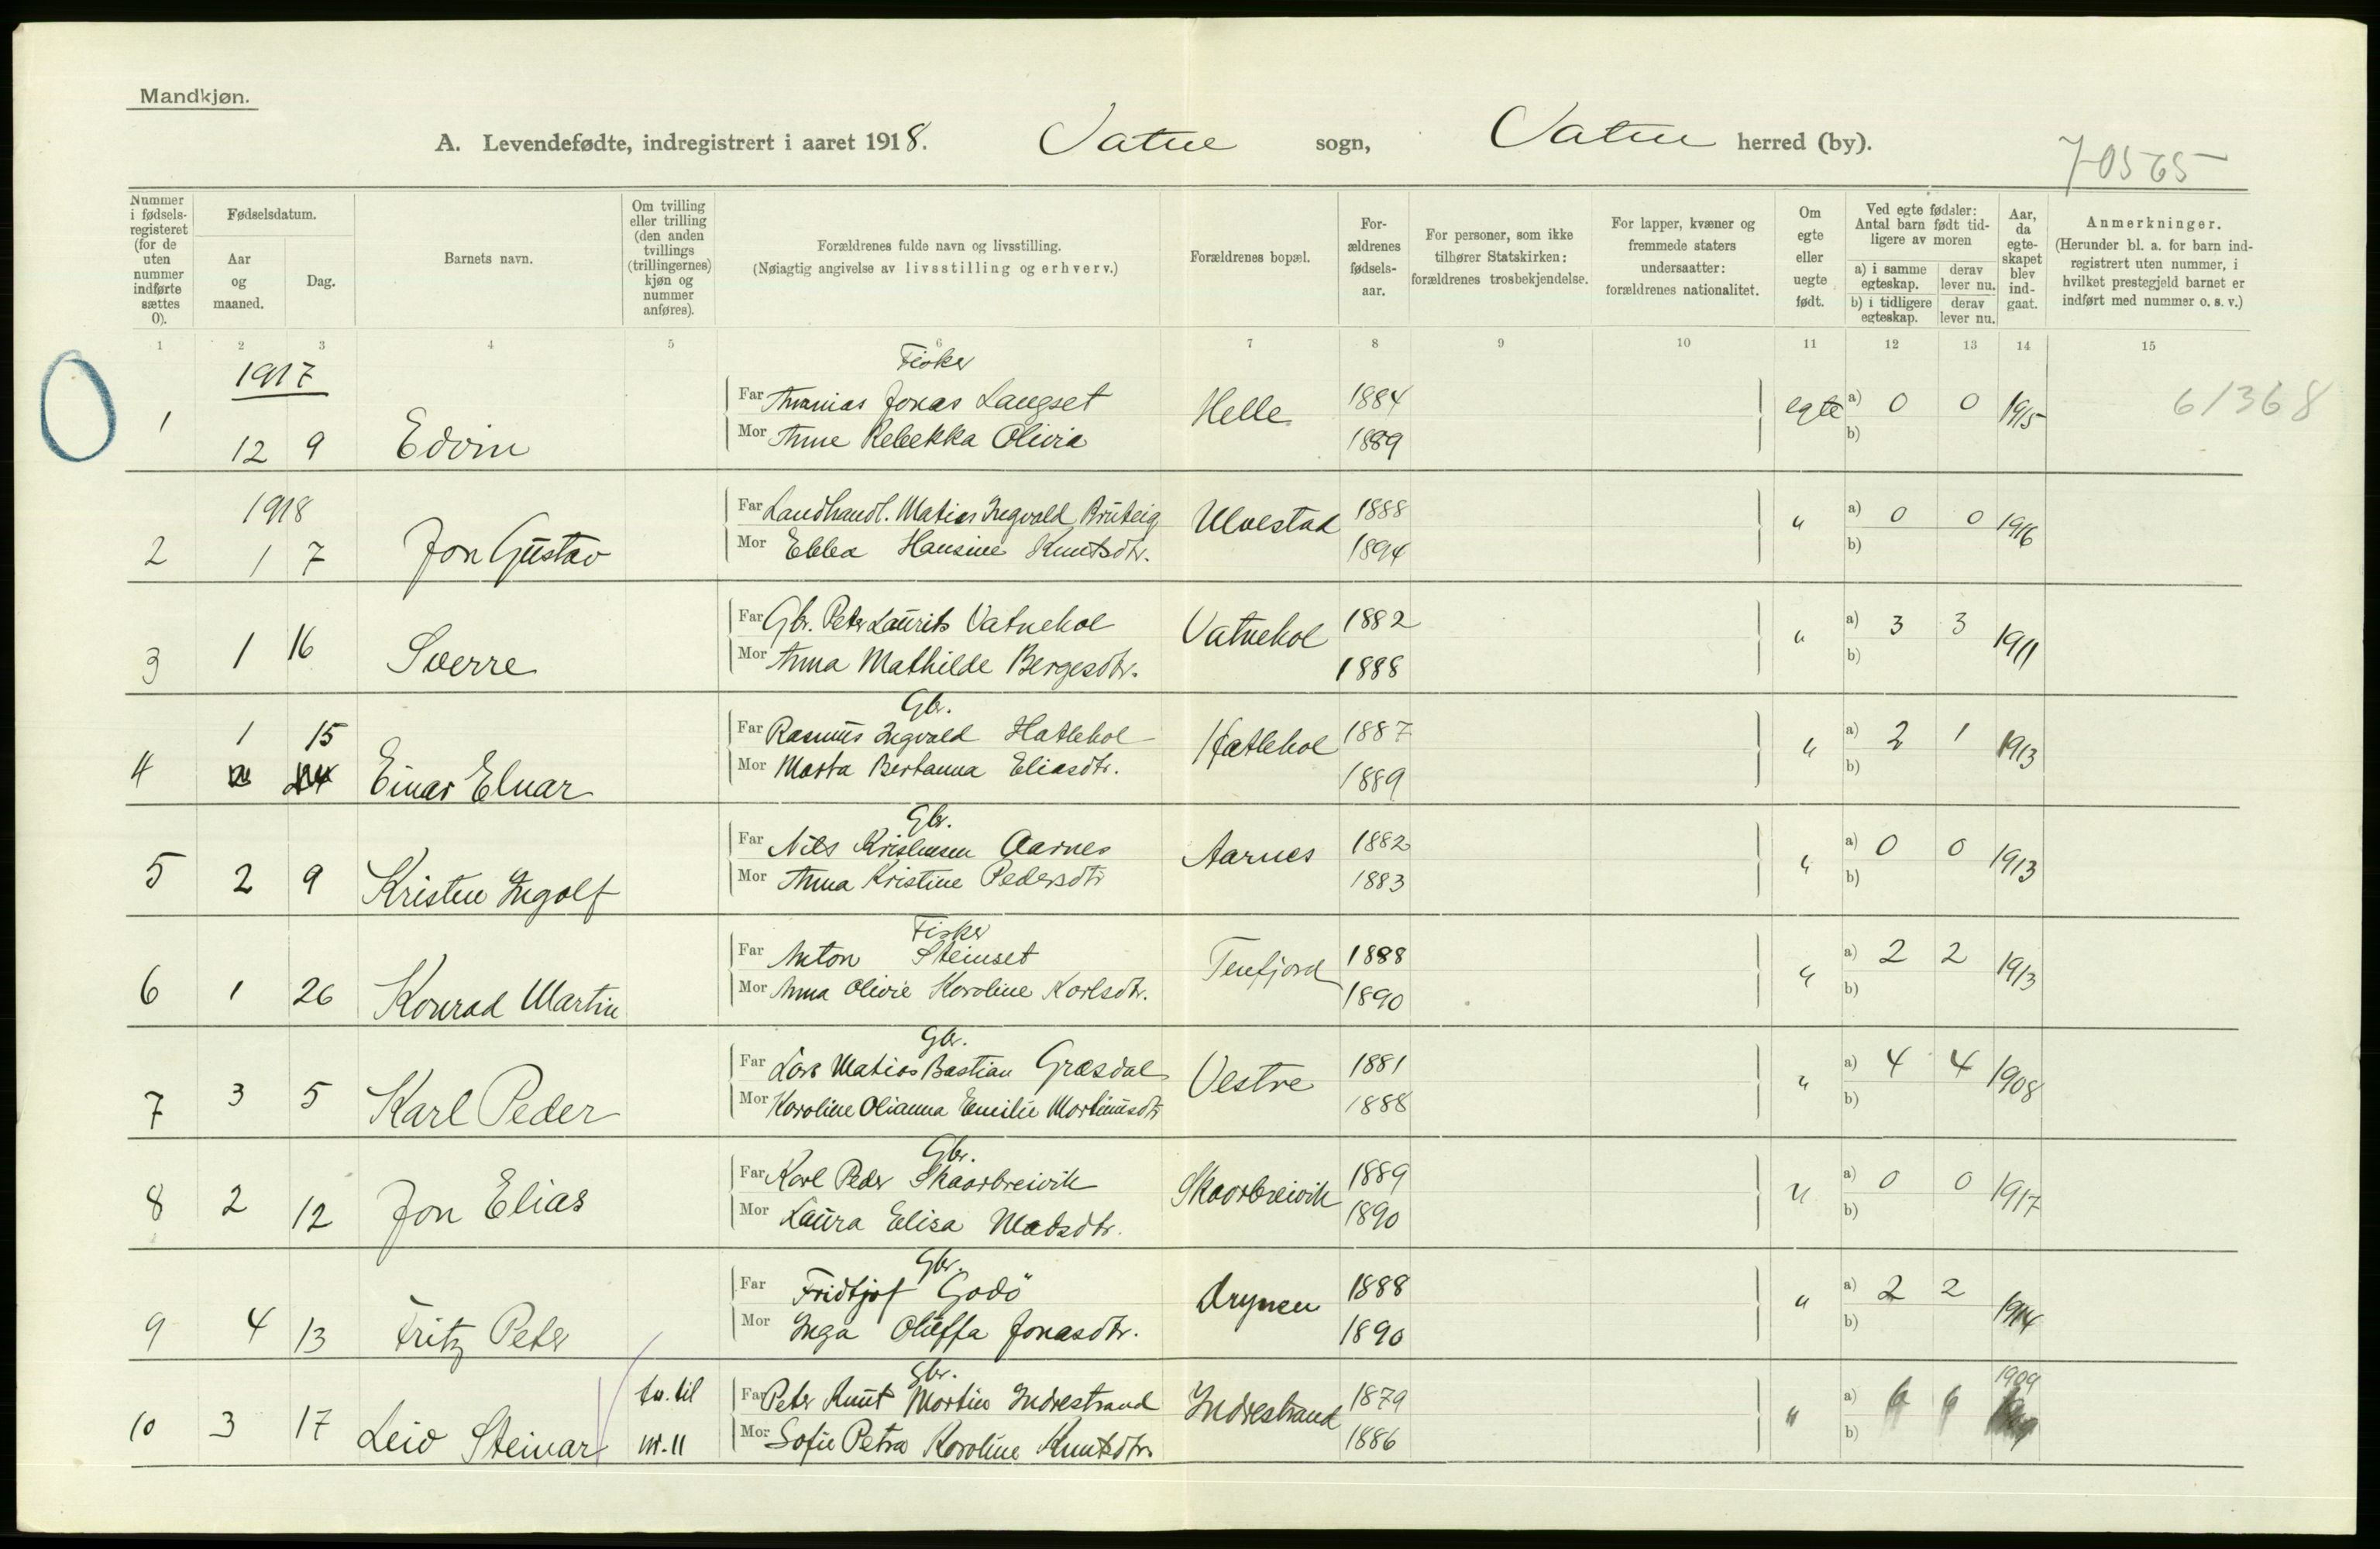 Mandkjøn.
A. Levendefødte, indregistrert i aaret 1918. Vatne sogn, Vatne herred (by).
70565
Nummer i fødselsregisteret (for de uten nummer indførte sættes 0).
Fødselsdatum.
Aar og maaned.
Dag.
Barnets navn.
Om tvilling eller trilling (den anden tvillings (trillingernes) kjøn og nummer anføres).
Forældrenes fulde navn og livsstilling.
(Nøiagtig angivelse av livsstilling og erhverv.)
Forældrenes bopæl.
Forældrenes fødselsaar.
For personer, som ikke tilhører Statskirken: forældrenes trosbekjendelse.
For lapper, kvæner og fremmede staters undersaatter: forældrenes nationalitet.
Om egte eller uegte født.
Ved egte fødsler: Antal barn født tidligere av moren
a) i samme egteskap.
derav lever nu.
b) i tidligere egteskap.
derav lever nu.
Aar, da egteskapet blev indgaat.
Anmerkninger.
(Herunder bl. a. for barn indregistrert uten nummer, i hvilket prestegjeld barnet er indført med nummer o. s. v.)
1 2 3 4 5 6 7 8 9 10 11 12 13 14 15
0
1917
Fisker
Far Ananias Jonas Langset Helle 1884 egte a) 0 0 1915 61368
1 12 9 Edvin Mor Anne Rebekka Olivia 1889 b)
1918
Far Landhandl. Matias Ingvald Bruteig Ulvestad 1888 " a) 0 0 1916
2 1 7 Jon Gustav Mor Ebba Hansine Knutsdtr. 1894 b)
Far Gbr. Peter Laurits Vatnehol Vatnehol 1882 " a) 3 3 1911
3 1 16 Sverre Mor Anna Mathilde Bergesdtr. 1888 b)
Gbr.
1 15 Far Rasmus Ingvald Hatlehol Hatlehol 1887 " a) 2 1 1913
4 Einar Elnar Mor Marta Bertanna Eliasdtr. 1889 b)
Gbr.
Far Nils Kristensen Aarnes Aarnes 1882 " a) 0 0 1913
5 2 9 Kristen Ingolf Mor Anna Kristine Pedersdtr 1883 b)
Fisker
Far Anton Steinset Tenfjord 1888 " a) 2 2 1913
6 1 26 Konrad Martin Mor Anna Olivie Karoline Karlsdtr. 1890 b)
Gbr.
Far Lars Matias Bastian Græsdal Vestre 1881 " a) 4 4 1908
7 3 5 Karl Peder Mor Karoline Olianna Emilie Martinusdtr 1888 b)
Gbr.
Far Karl Peder Skaarbreivik Skaarbreivik 1889 " a) 0 0 1917
8 2 12 Jon Elias Mor Laura Elisa Madsdtr. 1890 b)
Gbr.
Far Fridtjof Godö Drynen 1888 " a) 2 2 1914
9 4 13 Fritz Peter Mor Inga Oluffa Jonasdtr. 1890 b)
Gbr.
tv. til Far Peter Knut Martin Indrestrand Indrestrand 1879 " a) 6 6 1909
10 3 17 Leiv Steinar nr. 11 Mor Sofie Petra Karoline Knutsdtr. 1886 b)